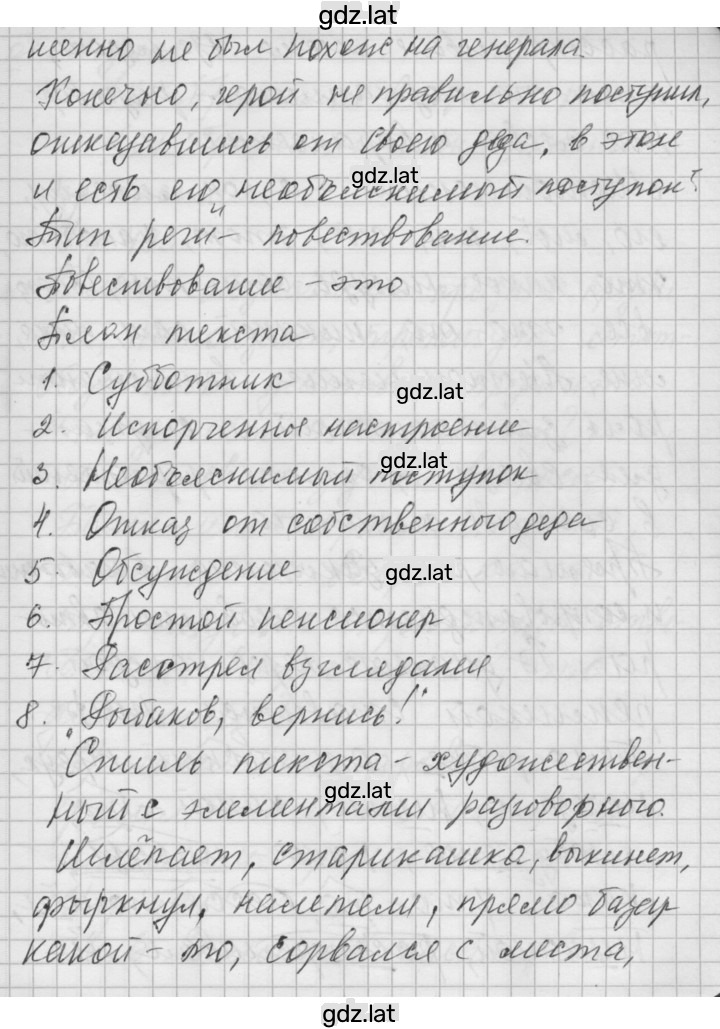 gdz.lat
шенно не был похож на генерала.
Конечно, герой не правильно поступил,
отказавшись от своего деда, в этом
gdz.lat
и есть его „необъяснимый поступок“.
Тип речи – повествование.
Повествование – это
План текста
1. Субботник
gdz.lat
2. Испорченное настроение
gdz.lat
3. Необъяснимый поступок
4. Отказ от собственного деда
5 Обсуждение
gdz.lat
6. Простой пенсионер
7. Расстрел взглядами
8. „Рыбаков, вернись!“
Стиль текста – художествен-
gdz.lat
ный с элементами разговорного.
Шлёпает, старикашка, выкинет,
фыркнул, налетели, прямо базар
какой-то, сорвался с места,
gdz.lat